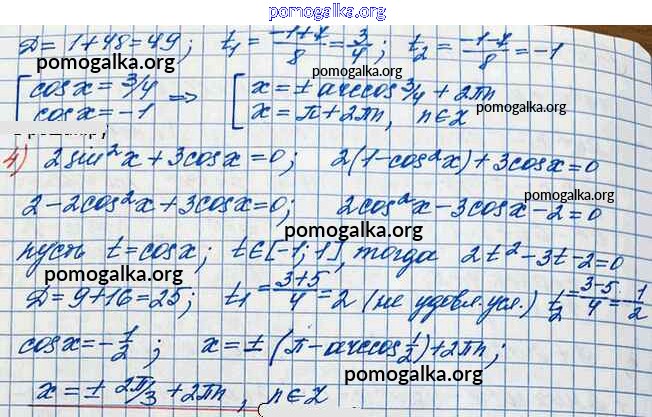 pomogalka.org
D = 1+48 = 49; t₁ = (-1+7)/8 = 3/4; t₂ = (-1-7)/8 = -1
pomogalka.org pomogalka.org
[cosx = 3/4 => [x = ± arccos 3/4 + 2πn
cosx = -1 x = π + 2πn, n∈Z pomogalka.org
4) 2sin²x + 3cosx = 0; 2(1-cos²x) + 3cosx = 0
pomogalka.org
2-2cos²x+3cosx=0; 2cos²x-3cosx-2=0
pomogalka.org
пусть t=cosx; t∈[-1;1], тогда 2t²-3t-2=0
pomogalka.org
D=9+16=25; t₁ = (3+5)/4 = 2 (не удовл. усл.) t₂ = (3-5)/4 = -1/2
pomogalka.org
cosx = -1/2; x = ± (π - arccos 1/2) + 2πn;
pomogalka.org
x = ± 2π/3 + 2πn, n∈Z